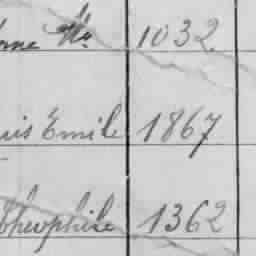 nne Ma 1032
uis Emile 1867
Théophile 1362